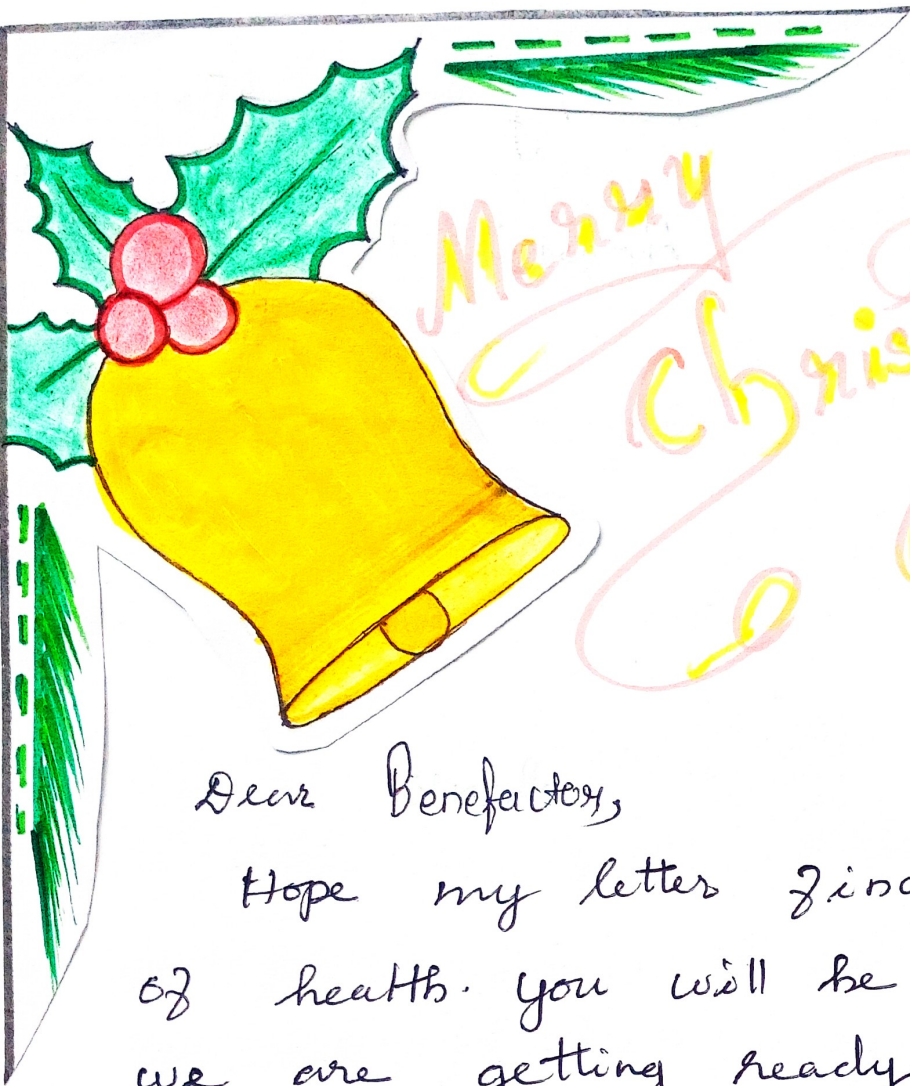 Merry
Chris
Dear Benefactor,
Hope my letter find
of health. you will be
we are getting ready